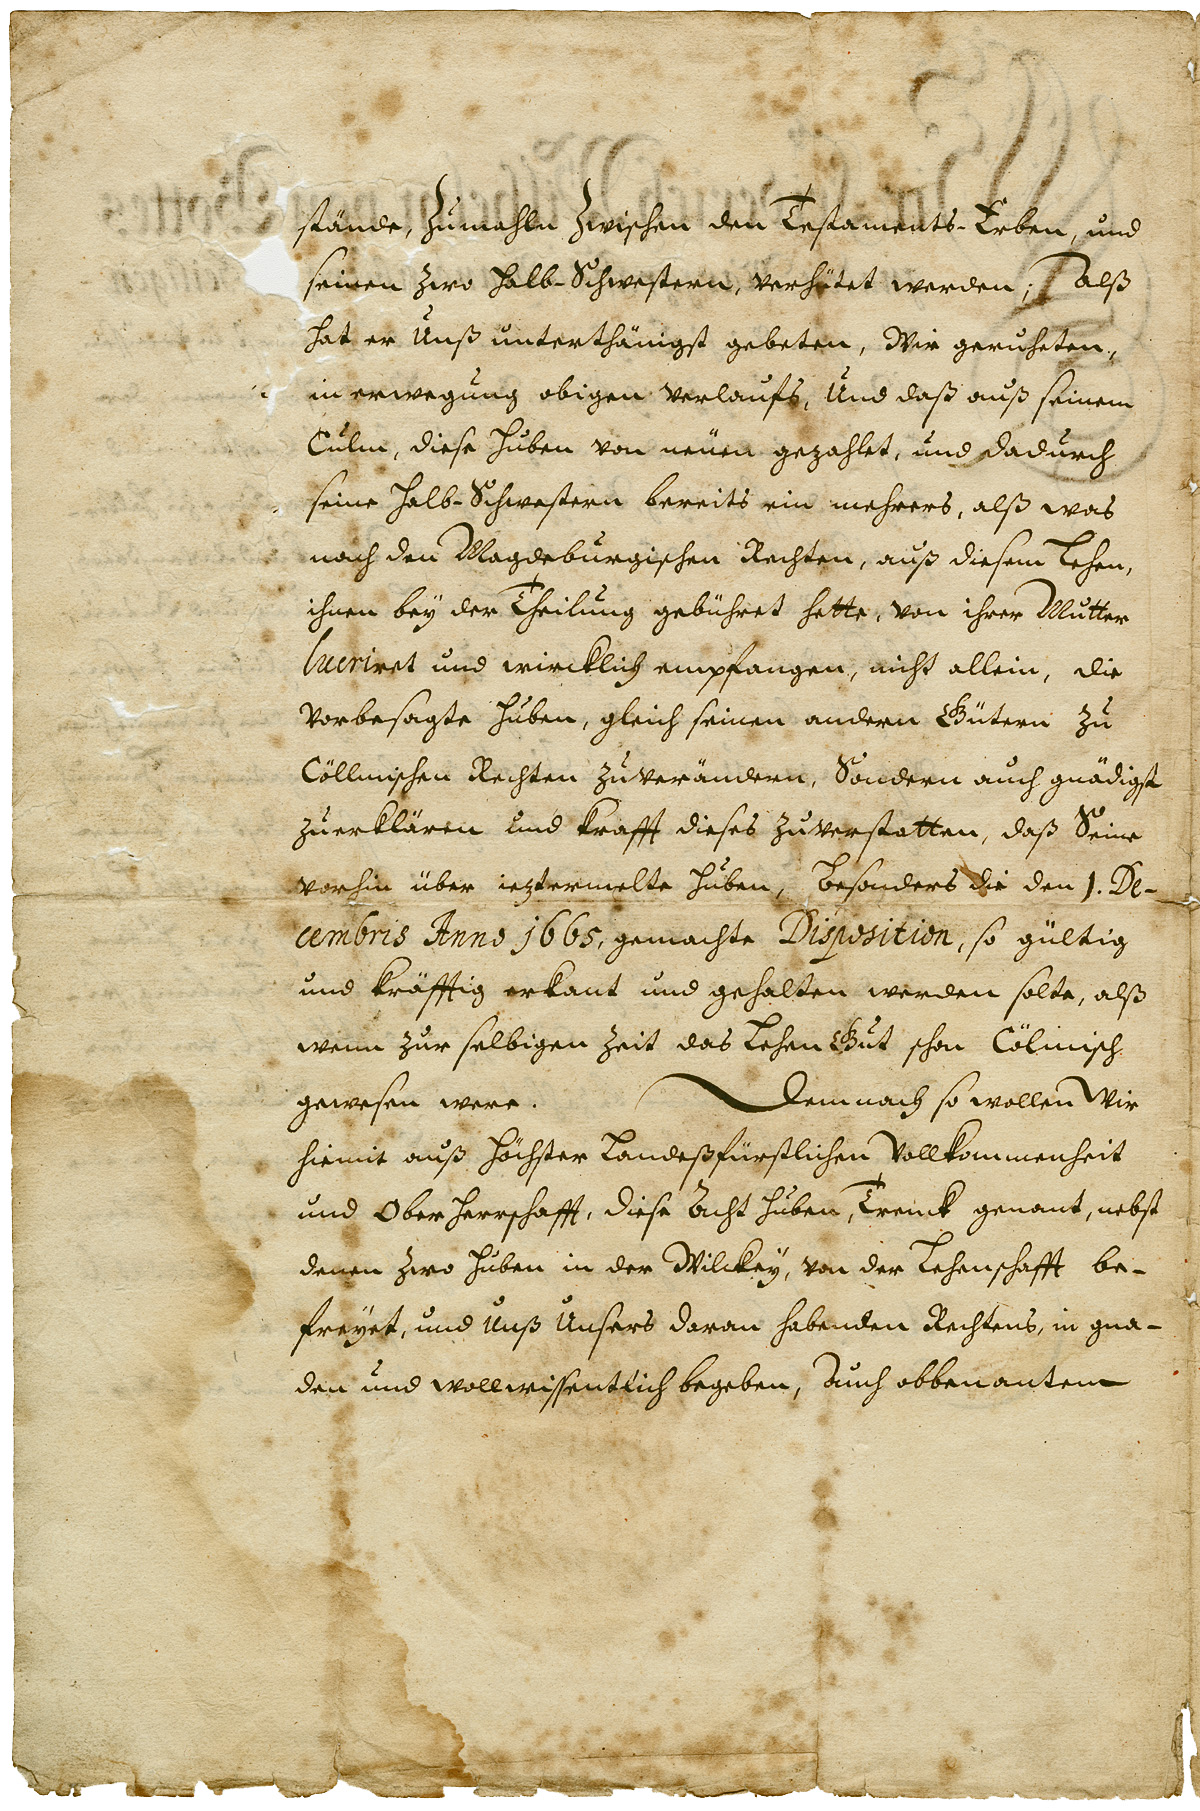 stände, Zumahln Zwischen den Testaments-Erben, und
seinen zwo Halb-Schwestern, verhütet werden; Alß
hat er Unß unterthänigst gebeten, Wir geruheten,
in erwegung obigen verlaufs, Und daß auß seinem
Culm, diese Huben von neüen gezahlet, und dadurch
seine Halb-Schwestern bereits ein mehrers, alß was
nach den Magdeburgischen Rechten, auß diesem Lehen,
ihnen beÿ der Theilung gebühret hette, von ihrer Mutter
lucriret und wircklich empfangen, nicht allein, die
Vorbesagte Huben, gleich seinen andern Gütern zu
Cöllmischen Rechten zuverändern, Sondern auch gnädigst
zuerklären und krafft dieses zuverstatten, daß Seine
vorhin über ieztermelte Huben, besonders die den 1. De-
cembris Anno 1665, gemachte Disposition, so gültig
und kräfftig erkant und gehalten werden solte, alß
wenn zur selbigen Zeit das Lehen Gut schon Cölmisch
gewesen were. Demnach so wollen Wir
hiemit auß Höchster Landeßfürstlichen Vollkommenheit
und Ober Herrschafft, diese Acht Huben, Trenck genant, nebst
denen zwo Huben in der Wilckeÿ, von der Lehenschafft be-
freÿet, und Unß Unsers daran habenden Rechtens, in gna-
den und wollwissentlich begeben, Auch obbenantem